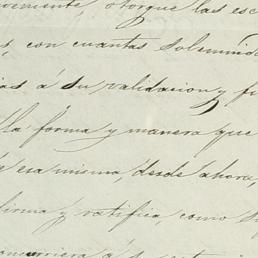 otorgue las es
, con cuantas solemnida
ias á su validacion y fi
lla forma y manera que
esa misma, desde ahora,
firma y ratifica, como s